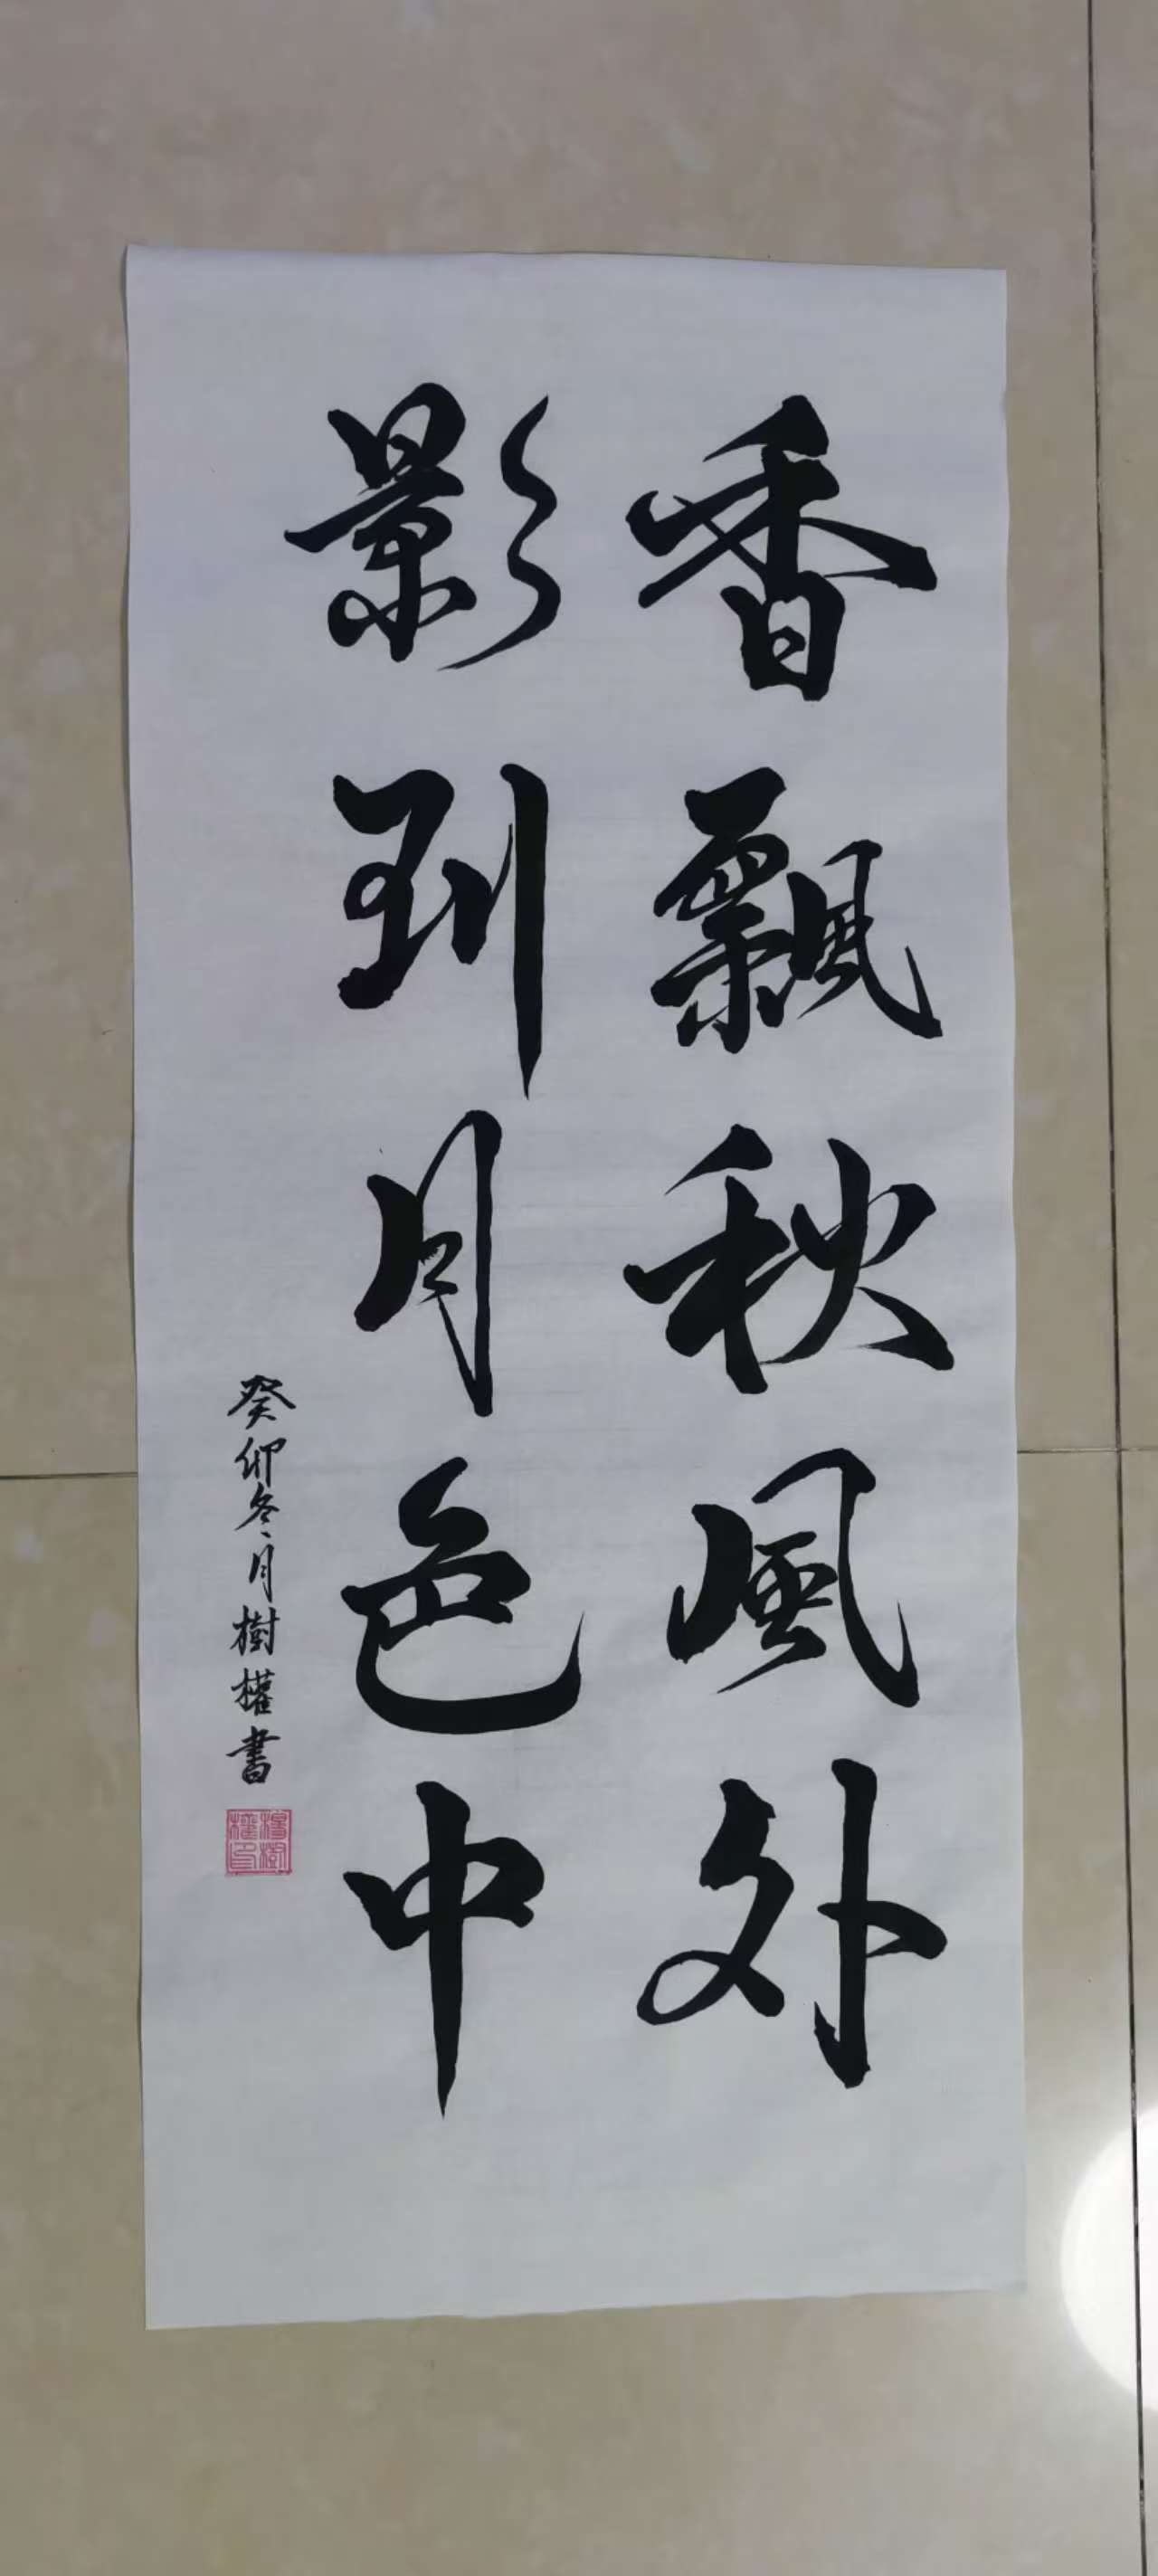 香飄秋風外
影到月色中
癸卯冬月樹權書
楊樹權印